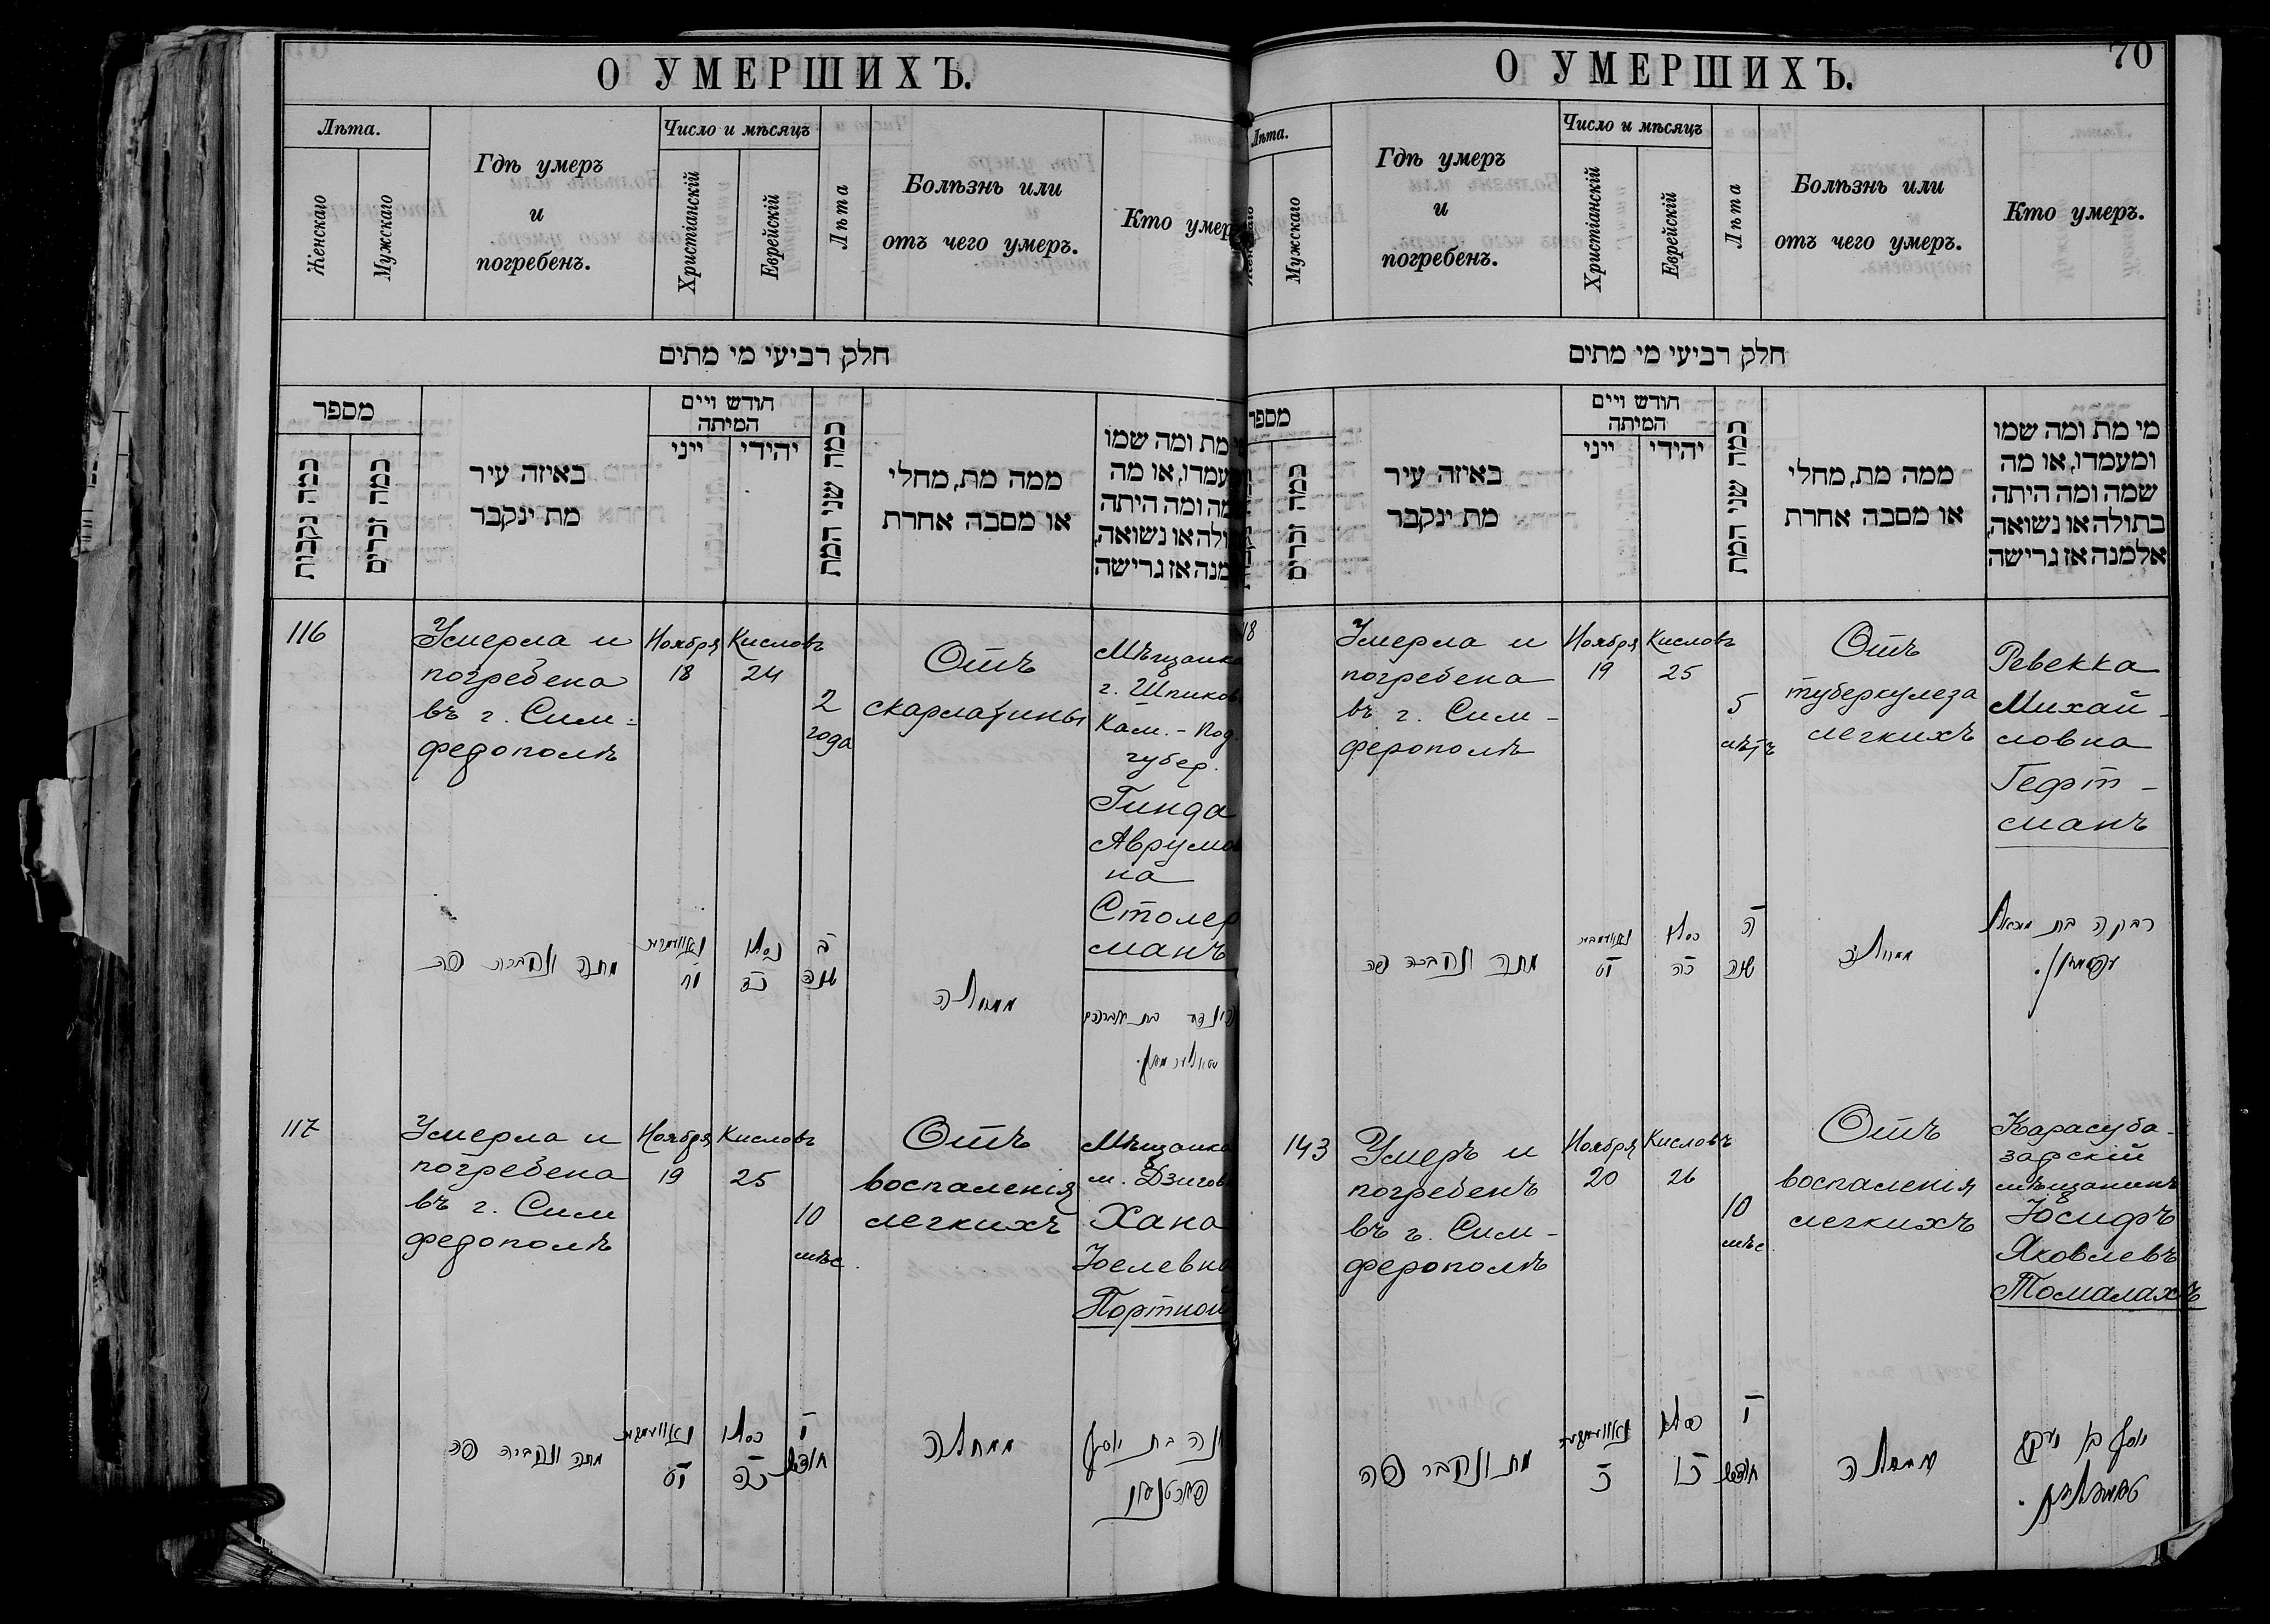 О УМЕРШИХЪ.
Лѣта.
Женскаго
Мужскаго
Гдѣ умеръ
и
погребенъ.
Число и мѣсяцъ
Христіанскій
Еврейскій
Лѣта
Болѣзнь или
отъ чего умеръ.
Кто умер
חלק רביעי מי מתים
מספר
כמה נקבות
כמה זכרים
באיזה עיר
מת ינקבר
חודש ויים
המיתה
ייני
יהידי
כמה שני המת
ממה מת, מחלי
או מסבה אחרת
מת ומה שמו
עמדו, או מה
מה ומה היתה
ולה או נשואה,
מנה אז גרישה
116
Умерла и
погребена
въ г. Сим=
федополѣ
Ноября
18
Кисловъ
24
2
года
Отъ
скарлатины
Мѣщанка
г. Шпиков
Кам.-Под.
губер.
Гинда
Аврумов
на
Столер
манъ
מתה ונקברה פה
נאוועמבער
יח
כסלו
כד
ב
שנה
ממחלה
בת אברהם
117
Умерла и
погребена
въ г. Сим
федополѣ
Ноября
19
Кисловъ
25
10
мѣс.
Отъ
воспаленія
легкихъ
Мѣщанка
м. Дзигов
Хана
Іоелевна
Портной
מתה ונקברה פה
נאוועמבער
יט
כסלו
כה
י
חודש
ממחלה
בת
О УМЕРШИХЪ.
70
Лѣта.
Мужскаго
Гдѣ умеръ
и
погребенъ.
Число и мѣсяцъ
Христіанскій
Еврейскій
Лѣта
Болѣзнь или
отъ чего умеръ.
Кто умеръ.
חלק רביעי מי מתים
מספר
כמה זכרים
באיזה עיר
מת ינקבר
חודש ויים
המיתה
ייני
יהידי
כמה שני המת
ממה מת, מחלי
או מסבה אחרת
מי מת ומה שמו
ומעמדו, או מה
שמה ומה היתה
בתולה או נשואה,
אלמנה אז גרישה
18
Умерла и
погребена
въ г. Сим-
ферополѣ
Ноября
19
Кисловъ
25
5
лѣтъ
Отъ
туберкулеза
легкихъ
Ревекка
Михай-
ловна
Гефт-
манъ
מתה ונקברה פה
נאוועמבער
יט
כסלו
כה
ה
שנה
ממחלה
רבקה בת
143
Умеръ и
погребенъ
въ г. Сим-
ферополѣ
Ноября
20
Кисловъ
26
10
мѣс.
Отъ
воспаленія
легкихъ
Карасуба-
зарскій
мѣщанинъ
Іосифъ
Яковлевъ
Томалахъ
מת ונקבר פה
נאוועמבער
כ
כסלו
כו
י
חודש
ממחלה
יוסף בן יעקב